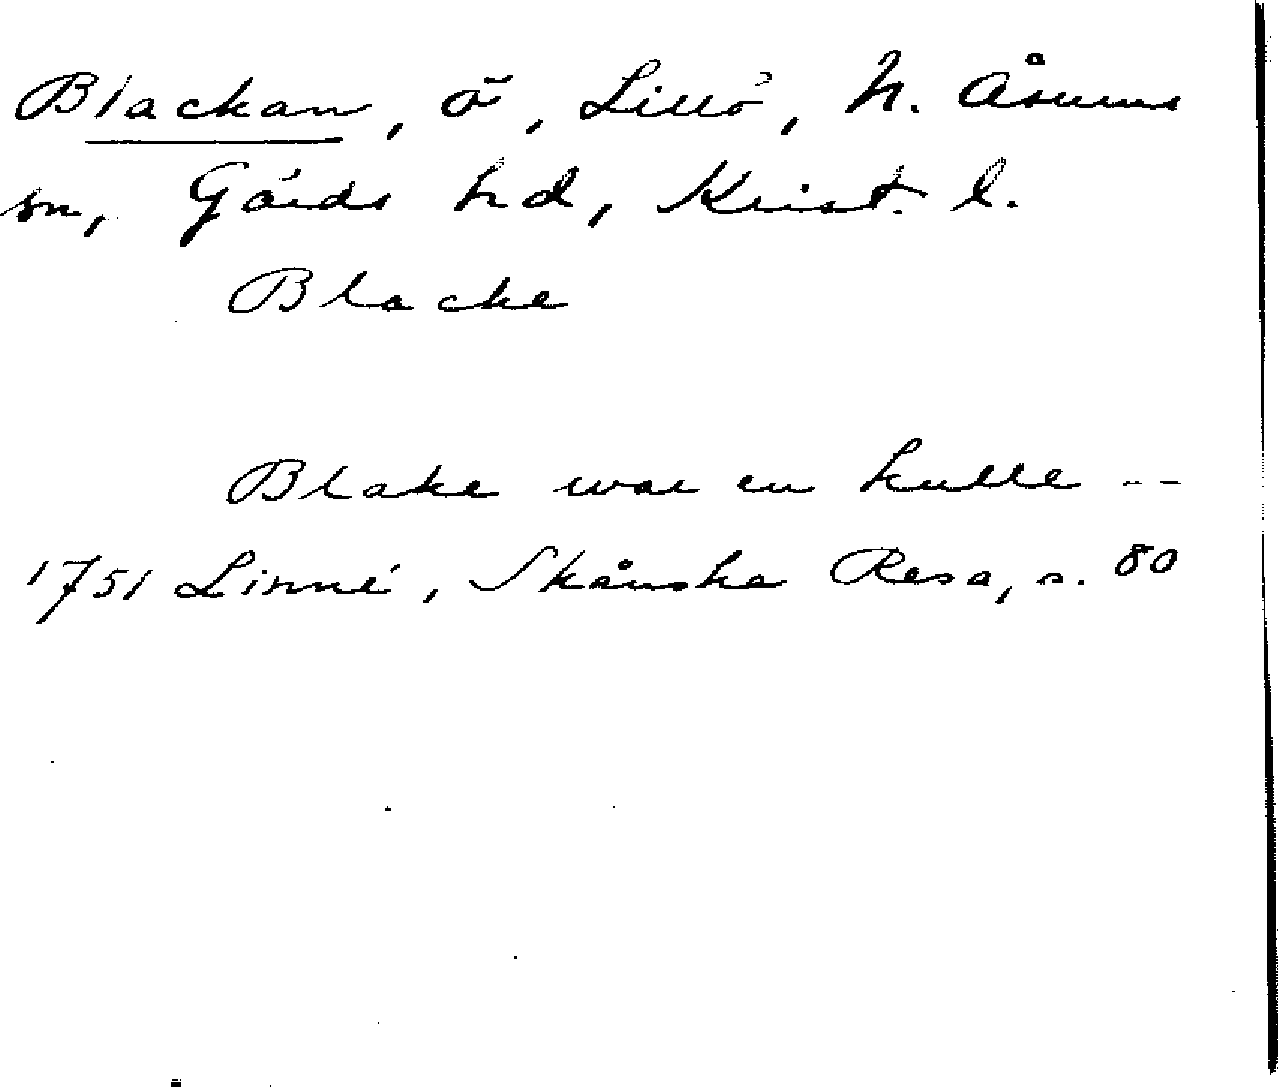 Blackan, ö, Lillö, N. Åsums
sn, Gärds hd, Krist. l.
Blacke
Blake war en kulle --
1751 Linné, Skånska Resa, s. 80